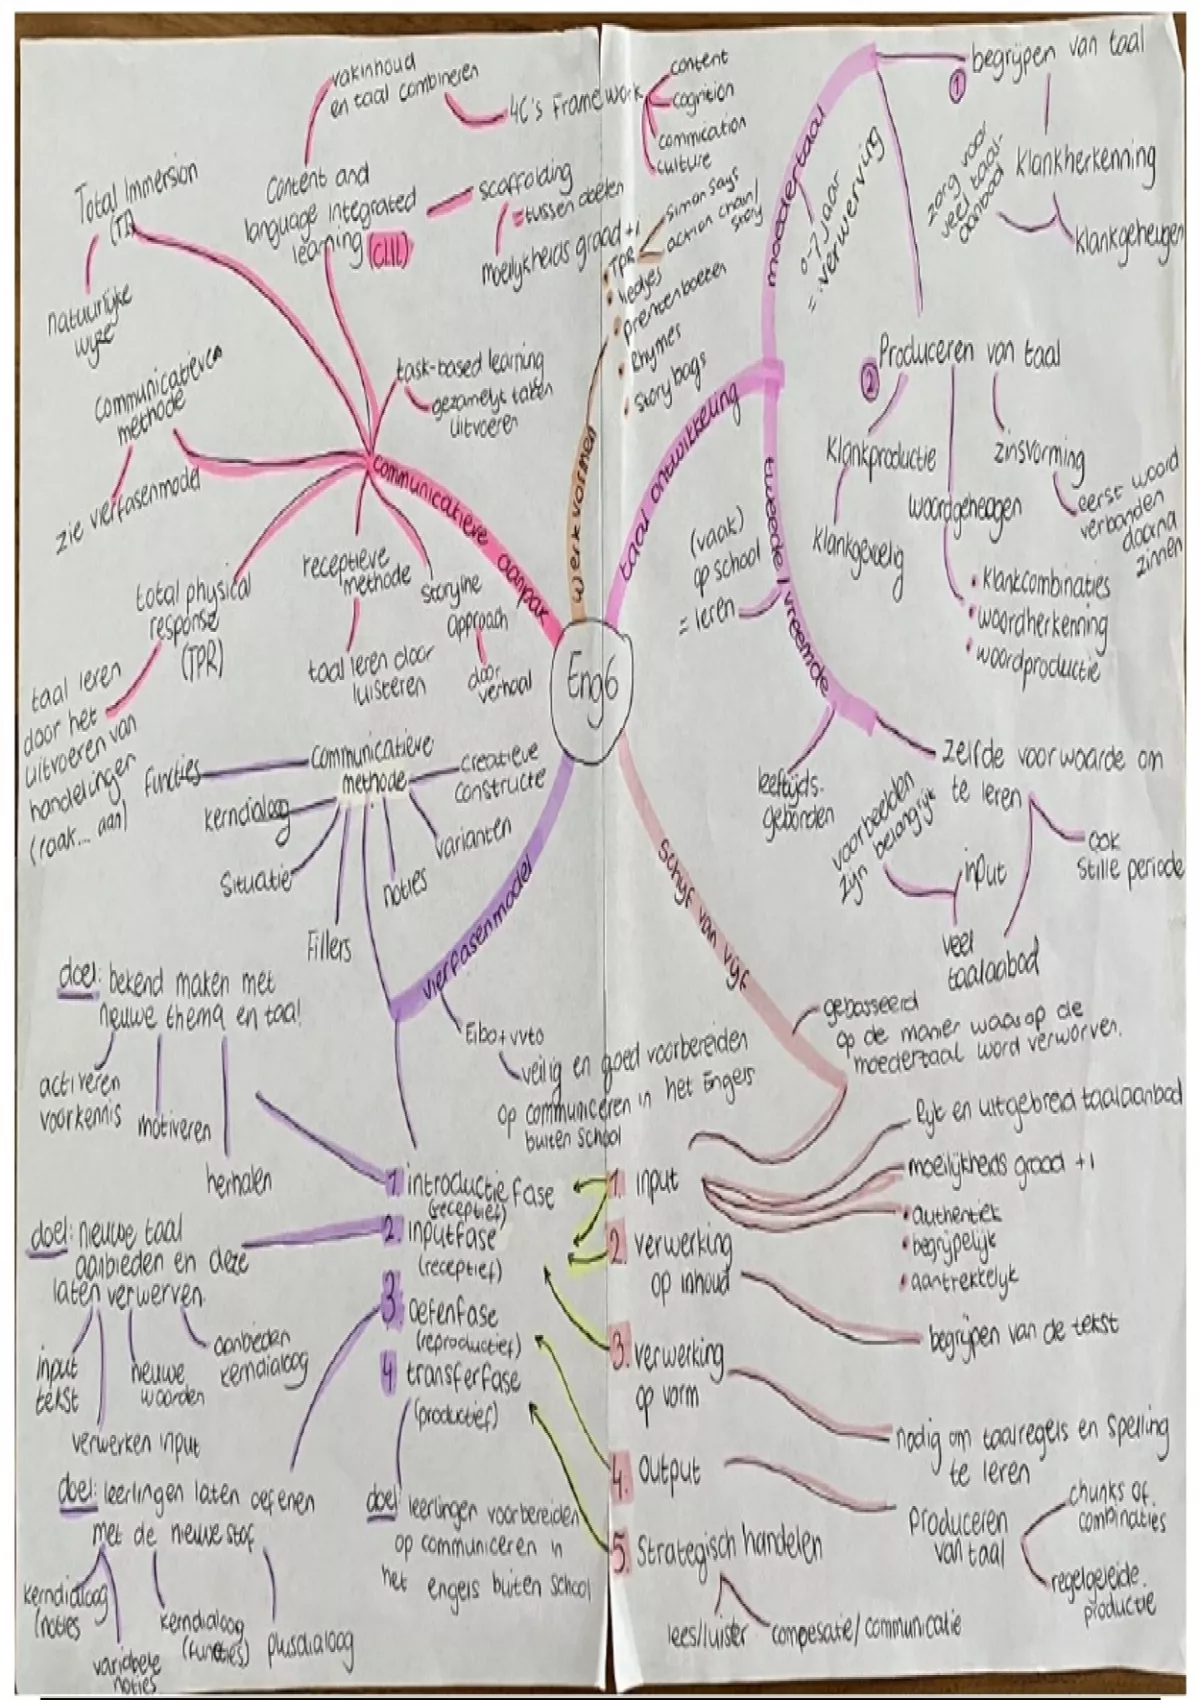 vakinhoud
en taal combineren
4C's Framework
content
cognition
commication
culture
Total Immersion
(TI)
natuurlijke
wijze
Content and
language integrated
learning (CLIL)
scaffolding
=tussen doelen
moeilijkheids graad +1
communicatieven
methode
zie vierfasenmodel
task-based learning
gezamelijk taken
uitvoeren
communicatieve aanpak
total physical
response
(TPR)
taal leren
door het
uitvoeren van
handelingen
(raak... aan)
receptieve
methode
taal leren door
luisteren
storyline
approach
door
verhaal
werkvormen
• TPR
simon says
action chain/
story
• liedjes
• prentenboeken
• Rhymes
• story bags
Eng6
taal ontwikkeling
moedertaal
0-7 jaar
= verwerving
1
begrijpen van taal
zorg voor
veel taal-
aanbod
Klankherkenning
Klankgeheugen
2
Produceren van taal
Klankproductie
Klankgevoelig
woordgeheugen
• Klankcombinaties
• woordherkenning
• woordproductie
zinsvorming
eerst woord
verbanden
daarna
zinnen
tweede/vreemde
(vaak)
op school
= leren
leeftijds.
gebonden
Zelfde voorwaarde om
te leren
ook
Stille periode
voorbeelden
zijn belangrijk
input
veel
taalaabod
vierfasenmodel
Communicatieve
methode
functies
kerndialoog
Situatie
Fillers
noties
varianten
creatieve
constructe
Eibo+vvto
veilig en goed voorbereiden
op communiceren in het Engels
buiten school
doel: bekend maken met
nieuwe thema en taal
activeren
voorkennis
motiveren
herhalen
1. introductiefase
(receptief)
2. inputfase
(receptief)
3 oefenfase
(reproductief)
4 transferfase
(productief)
doel: nieuwe taal
aanbieden en deze
laten verwerven.
input
tekst
verwerken input
nieuwe
woorden
aanbieden
kerndialoog
doel: leerlingen laten oefenen
met de nieuwe stof
kerndialoog
(noties
variabele
noties
kerndialoog
(functies)
plusdialoog
doel leerlingen voorbereiden
op communiceren in
het engels buiten school
schijf van vijf
gebasseerd
op de manier waarop de
moedertaal word verworven.
1. input
Rijk en uitgebreid taalaanbod
moeilijkheids graad +1
• authentiek
• begrijpelijk
• aantrekkelijk
2. verwerking
op inhoud
begrijpen van de tekst
3. verwerking
op vorm
nodig om taalregels en spelling
te leren
4. Output
Produceren
van taal
chunks of
combinaties
regelgeleide
productie
5. Strategisch handelen
lees/luister
compesatie/communicatie